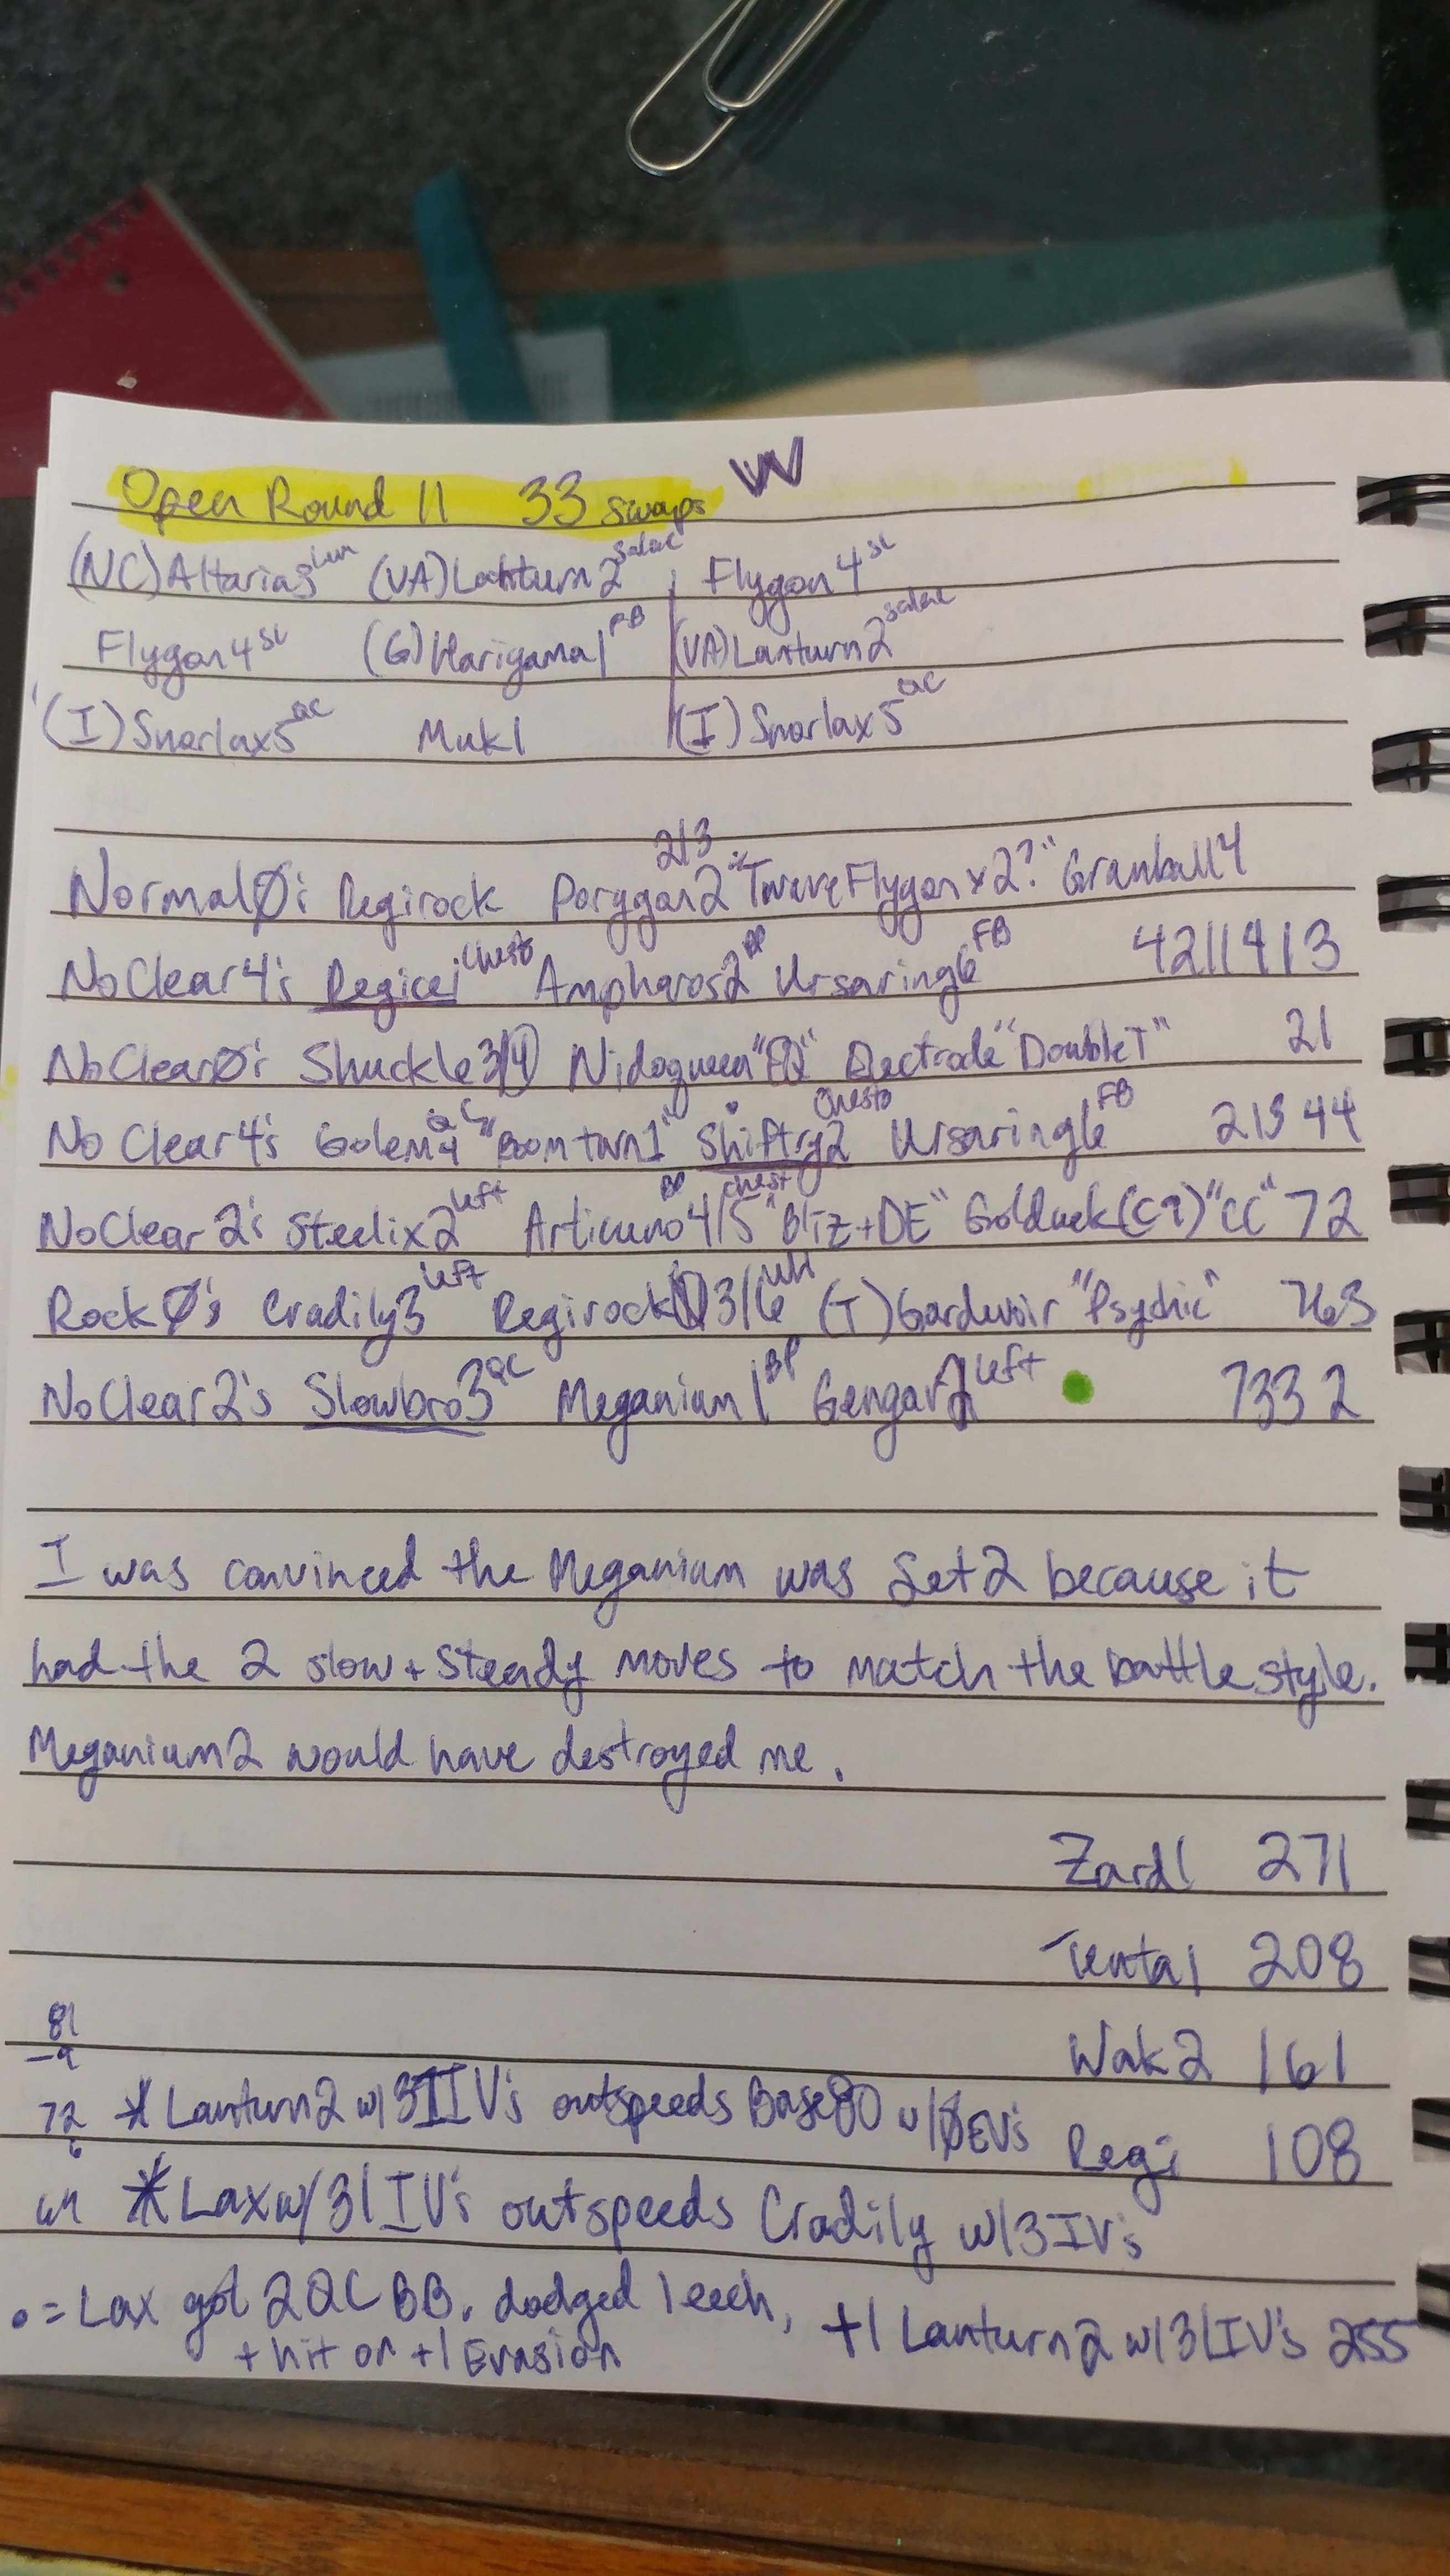 Open Round 11 33 swaps W
(NC) Altaria5 Lum (VA) Lanturn2 Salac Flygon4 SL
Flygon4 SL (G) Harigama1 FB (VA) Lanturn2 Salac
(I) Snorlax5 QC Muk1 (I) Snorlax5 QC
Normal0: Regirock Porygon2 2/3 "Twave Flygon x2?" Granbull4
No Clear4's Regice1 Chesto Ampharos2 BP Ursaring6 FB 4211413
No Clear0: Shuckle3/4 Nidoqueen "EQ" Electrode "Double T" 21
No Clear4's Golem4 QC "Boom turn1" Shiftry2 Chesto Ursaring6 FB 21344
No Clear2's Steelix2 left Articuno4/5 BP Chest "Bliz+DE" Golduck (C9) "CC" 72
Rock0's Cradily3 left Regirock 3/6 (T) Gardevoir "Psychic" 763
No Clear2's Slowbro3 QC Meganium1 BP Gengar2 left 7332
I was convinced the Meganium was Set2 because it
had the 2 slow + steady moves to match the battle style.
Meganium2 would have destroyed me.
Zard1 271
Tenta1 208
Wak2 161
81
-9
72 * Lanturn2 w/31IV's outspeeds Base80 w/0EV's Regi 108
6
* Lax w/31IV's outspeeds Cradily w/3IV's
• = Lax got 2QC BB, dodged leech, +1 Lanturn2 w/31IV's 255
+ hit on +1 Evasion